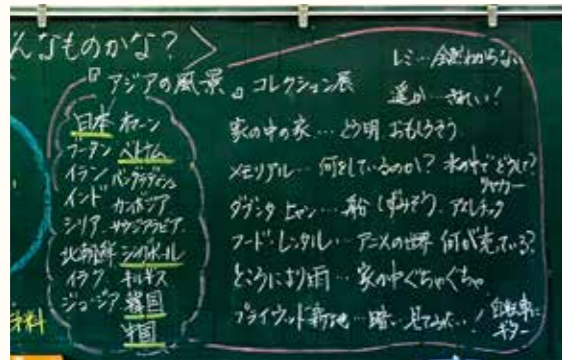 んなものかな？
『アジアの風景』コレクション展
日本 オマーン
ブータン ベトナム
イラン バングラデシュ
インド カンボジア
シリア サウジアラビア
北朝鮮 シンガポール
イラク キルギス
ジョージア 韓国
中国
レミ…全然わからない
遥か…きれい！
家の中の家…どう明 おもしろそう
メモリアル…何をしているのか？水の中でどうして？
シャカー
船 しずみそう アスレチック
フード・レンタル…アニメの世界 何が売っている？
ところにより雨…家の中ぐちゃぐちゃ
プライウッド新地…暗い 見てみたい！自転車に
ギター
料